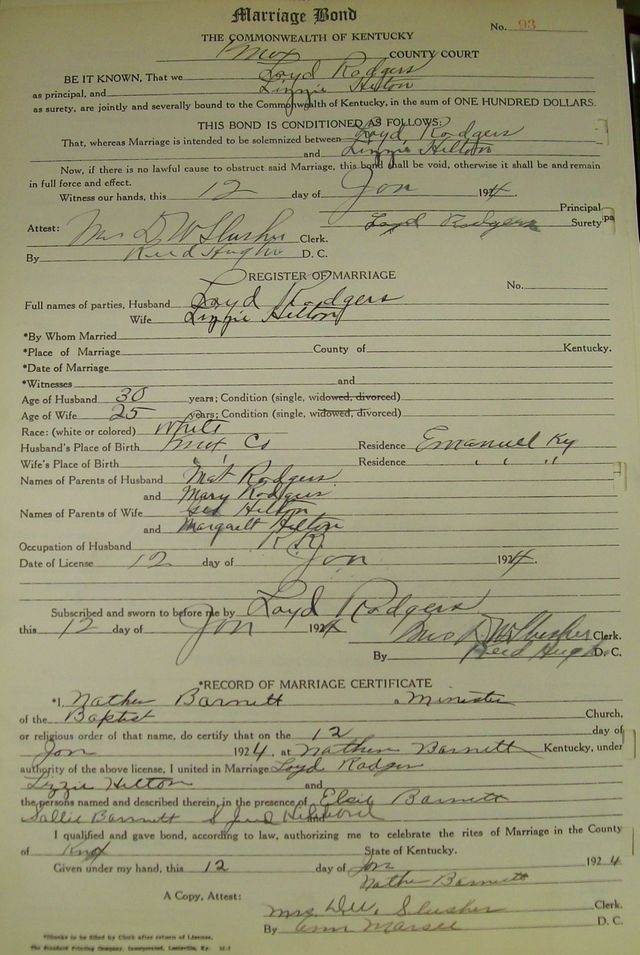 Marriage Bond
No. 93
THE COMMONWEALTH OF KENTUCKY
Knox COUNTY COURT
BE IT KNOWN, That we Loyd Rodgers
as principal, and Lizzie Hilton
as surety, are jointly and severally bound to the Commonwealth of Kentucky, in the sum of ONE HUNDRED DOLLARS.
THIS BOND IS CONDITIONED AS FOLLOWS:
That, whereas Marriage is intended to be solemnized between Loyd Rodgers
and Lizzie Hilton
Now, if there is no lawful cause to obstruct said Marriage, this bond shall be void, otherwise it shall be and remain
in full force and effect.
Witness our hands, this 12 day of Jan 1924.
Principal
Loyd Rodgers Surety
Attest: Mrs D. W Slusher Clerk.
By Reed Hughes D. C.
REGISTER OF MARRIAGE
No.
Full names of parties, Husband Loyd Rodgers
Wife Lizzie Hilton
*By Whom Married
*Place of Marriage County of Kentucky.
*Date of Marriage
*Witnesses and
Age of Husband 30 years; Condition (single, widowed, divorced)
Age of Wife 25 years; Condition (single, widowed, divorced)
Race: (white or colored) White
Husband's Place of Birth Knox Co Residence Emanuel Ky
Wife's Place of Birth " " Residence " " "
Names of Parents of Husband Mat Rodgers
and Mary Rodgers
Names of Parents of Wife Hilton
and Margarett Hilton
Occupation of Husband R. R.
Date of License 12 day of Jan 1924.
Subscribed and sworn to before me by Loyd Rodgers
this 12 day of Jan 1924 Mrs D. W Slusher Clerk.
By Reed Hughes D. C.
*RECORD OF MARRIAGE CERTIFICATE
*I, Nathen Barnett a Minister
of the Baptist Church,
or religious order of that name, do certify that on the 12 day of
Jan 1924, at Nathen Barnett Kentucky, under
authority of the above license, I united in Marriage Loyd Rodgers
Lizzie Hilton and
the persons named and described therein, in the presence of Elsie Barnett
Sallie Barnett and
I qualified and gave bond, according to law, authorizing me to celebrate the rites of Marriage in the County
of Knox State of Kentucky.
Given under my hand, this 12 day of Jan 1924
Nathen Barnett
A Copy, Attest:
Mrs. D.W. Slusher Clerk.
By D. C.
*Blanks to be filled by Clerk after return of License.
The Standard Printing Company, Incorporated, Louisville, Ky.